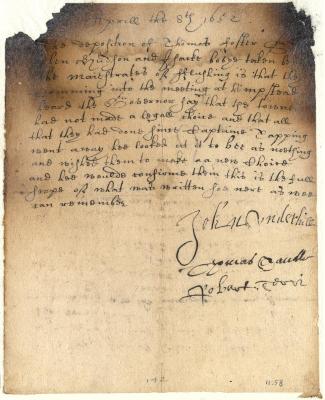 Aprill the 8th 1652
The deposition of Thomas foster &
hudson and taken by
the maiestrates of fflushing is that the
comming into the meeting at hempstead
heard the Governor say that the towne
had not made a legall choice and that all
that they had done since Captaine Topping
went away hee looked at it to bee as nothing
and wished them to make a new choice
and hee would confirme them this is the full
scope of what was written soe nere as wee
can remember
John Underhill
Thomas Saull
Robert Terri
142 11:58